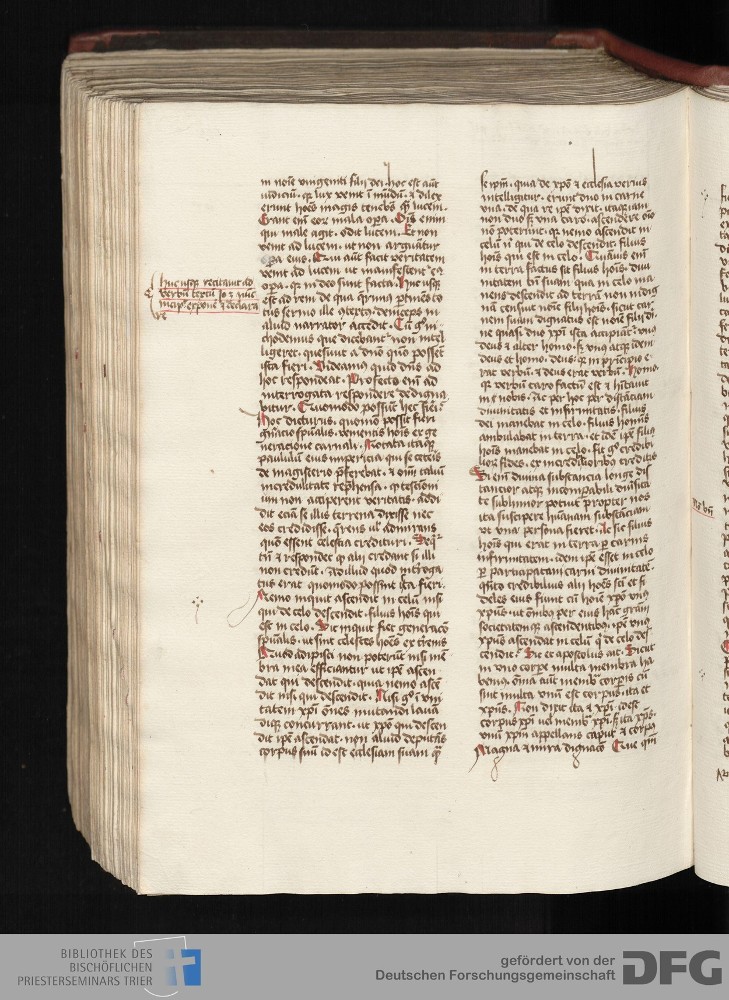 in noīe vnigeniti filij dei. hoc est aūt
iudiciū. qꝛ lux venit ī mūdū. ⁊ dilex
erunt hoēs magis tenebͣs qͣ lucem
Erant eīm eoꝝ mala oꝑa. Oīs enim
qui male agit. odit lucem. Et non
venit ad lucem. ut non arguātur
oꝑa eius. Qui aūt facit veritatem
venit ad lucem ut manifestent᷑ eiꝰ
oꝑa. qꝛ in deo sunt facta. Huc usqꝫ
est ad rem de qua prīmꝰ ꝑtinēs to
tus sermo ille ꝯtextꝰ. deinceps in
aliud narrator accedit. Cū gͦ ni
chodemus que dicebant᷑ non intel
ligeret. quesiuit a dn̄o quō possēt
ista fieri. Videamꝰ quid dn̄s ad
hoc respondeat. Profecto eīm ad
interrogata respondere dedigna
bitur. Quomodo possūt hec fieri.
Hoc dicturus. quomō possit fieri
gn̄acio spūalis. venientis hoīs ex ge
neracione carnali. Notata itaqꝫ
paululū eius imꝑicia qui se ceteris
de magisterio p̄ferebat. ⁊ oīm taliū
incredulitate rep̄hensa. qꝛ testioni
um non acciperent veritatis. addi
dit eciā se illis terrena dixisse nec
eos credidisse. q̄rens ul̄ admirans
quō essent celestia credituri. Seqͥ
tͥ ⁊ respondet qꝛ alij credant si illi
non credūt. Ad illud quod īterroga
tus erat quomodo possint ista fieri.
Nemo inquit ascendit in celū nisi
qui de celo descendit. filius hoīs qui
est in celo. Sic inquit fiet generacō
spūalis. ut sint celestes hoēs ex trenis
Quod adipisci non poterūt nisi mē
bra mea efficiantur ut ip̄e ascen
dat qui descendit. quia nemo ascē
dit nisi qui descendit. Nisi gͦ ī vni
tatem xp̄i ōnes mutandi leuā
diqꝫ concurrant. ut xp̄c qui descen
dit ip̄e ascendat. non aliud deputās
corpus suū id est ecclesiam suam qͣ
se ip̄m. quia de xp̄o ⁊ ecclesia verius
intelligitur. erunt duo in carne
vna. de qua re ip̄e dixit. itaqꝫ iam
non duo sꝫ vna caro. ascendere oīo
nō poterunt. qꝛ nemo ascendit in
celū ni qui de celo descendit. filius
hoīs qui est in celo. Quāuis eīm
in terra factus sit filius hoīs. diui
nitatem tn̄ suam qua in celo ma
nens descendit ad terrā non indig
nā censuit noīe filij hoīs. sicut car
nem suam dignatus est noīe filij di
ne quasi duo xp̄i ista accipiāt᷑. vnꝰ
deus ⁊ alter homo. sꝫ vnꝰ atqꝫ idem
deus et homo. deus. qꝛ in prīcipio e
rat verbū. ⁊ deus erat verbū. Homo.
qꝛ verbū caro factū est ⁊ hītauit
in nobis. Ac per hoc per distāciam
diuinitatis et infirmitatis. filius
dei manebat in celo. filius hominis
ambulabat in terra. et idē ip̄e filiꝰ
hoīs manebat in celo. Fit gͦ credibi
lioꝝ fides. ex incredibilioribꝰ creditis
Si eīm diuina substancia longe dis
tancior atqꝫ incomꝑabili diuͥsita
te sublimior potuit propter nos
ita suscipere humanam substāciam
ut vna ꝑsona fieret. Ac sic filius
hoīs qui erat in terra ꝑ carnis
infirmitatem. idem ip̄e esset in celo
ꝑ participatam carni diuinitatē.
quāto credibilius alij hoēs scī et fi
deles eius fiunt cū hoīe xp̄o vnꝰ
xp̄us. ut oībꝰ per eius hāc grām
societatemqꝫ ascendentibꝰ. ip̄e vnꝰ
xp̄us ascendat in celū qͥ de celo des
cendit. Sic et apostolus ait. Sicut
in vno corꝑe multa membra ha
bemꝰ. oīa aūt membͣ corꝑis cū
sint multa vnū est corpus. ita et
xp̄us. Non dixit ita ⁊ xp̄i. id est
corpus xp̄i ul̄ membͣ xp̄i. sꝫ ita xp̄s.
vnū xp̄m appellans caput ⁊ corpꝰ
Magna ⁊ mira dignacō. Que qm̄
huc usqꝫ recitauit ad
verbū textū Io ⁊ nūc
incip̄ exponē ⁊ declara
re
BIBLIOTHEK DES
BISCHÖFLICHEN
PRIESTERSEMINARS TRIER
gefördert von der
Deutschen Forschungsgemeinschaft
DFG